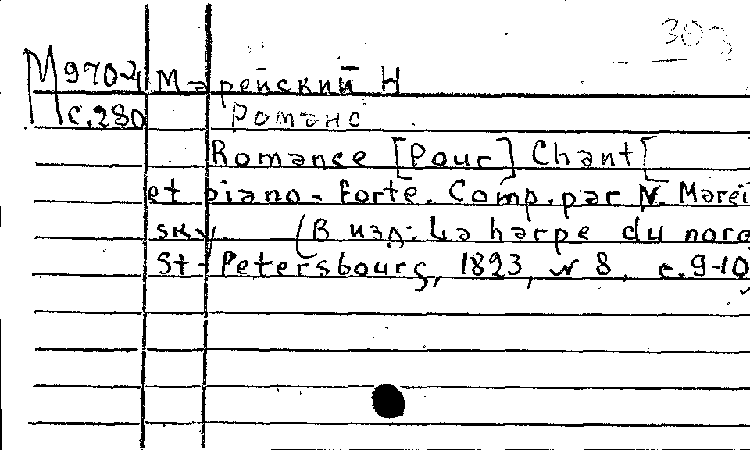 303
М970-4 Марейский Н
с.280 Романс
Romance [Pour] Chant [
et piano-forte. Comp. par N. Marei
sky (В изд.: La harpe du nord
St-Petersbourg, 1823, № 8, с.9-10